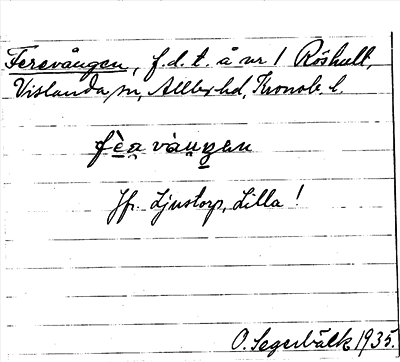 Ferevången, f.d. t. å nr 1 Röshult,
Vislanda sn, Allbo hd, Kronob. l.
fèa vàngen
Jfr. Ljustorp, Lilla!
O. Segerbäck 1935.